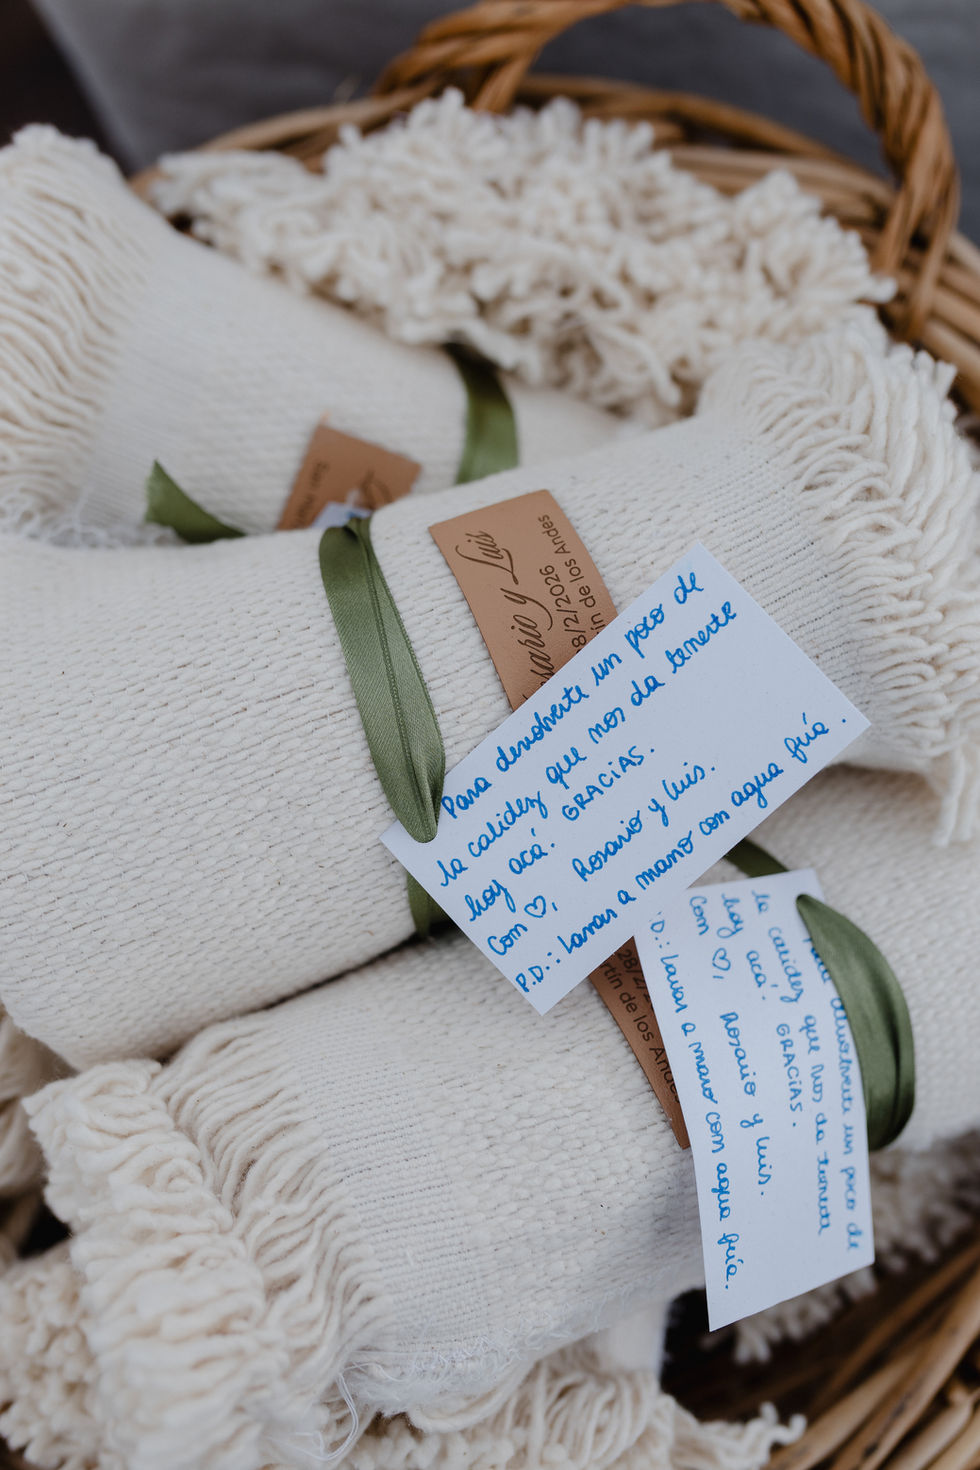 y Luis
8/2/2026
de los Andes
Para devolverte un poco de
la calidez que nos da tenerte
hoy acá. GRACIAS.
Com ♡, Rosario y Luis.
P.D.: Lavar a mano con agua fría.
28/2/
de los Andes
devolverte un poco de
la calidez que nos da tenerte
hoy acá. GRACIAS.
Com ♡, Rosario y Luis.
.D.: Lavar a mano con agua fría.